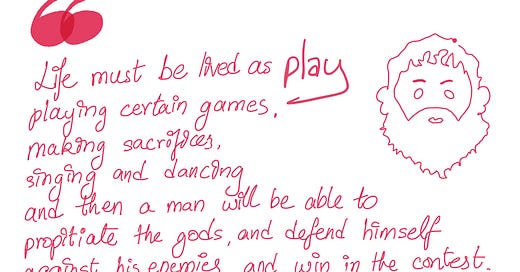 Life must be lived as play
playing certain games,
making sacrifices,
singing and dancing
and then a man will be able to
propitiate the gods, and defend himself
against his enemies, and win in the contest.